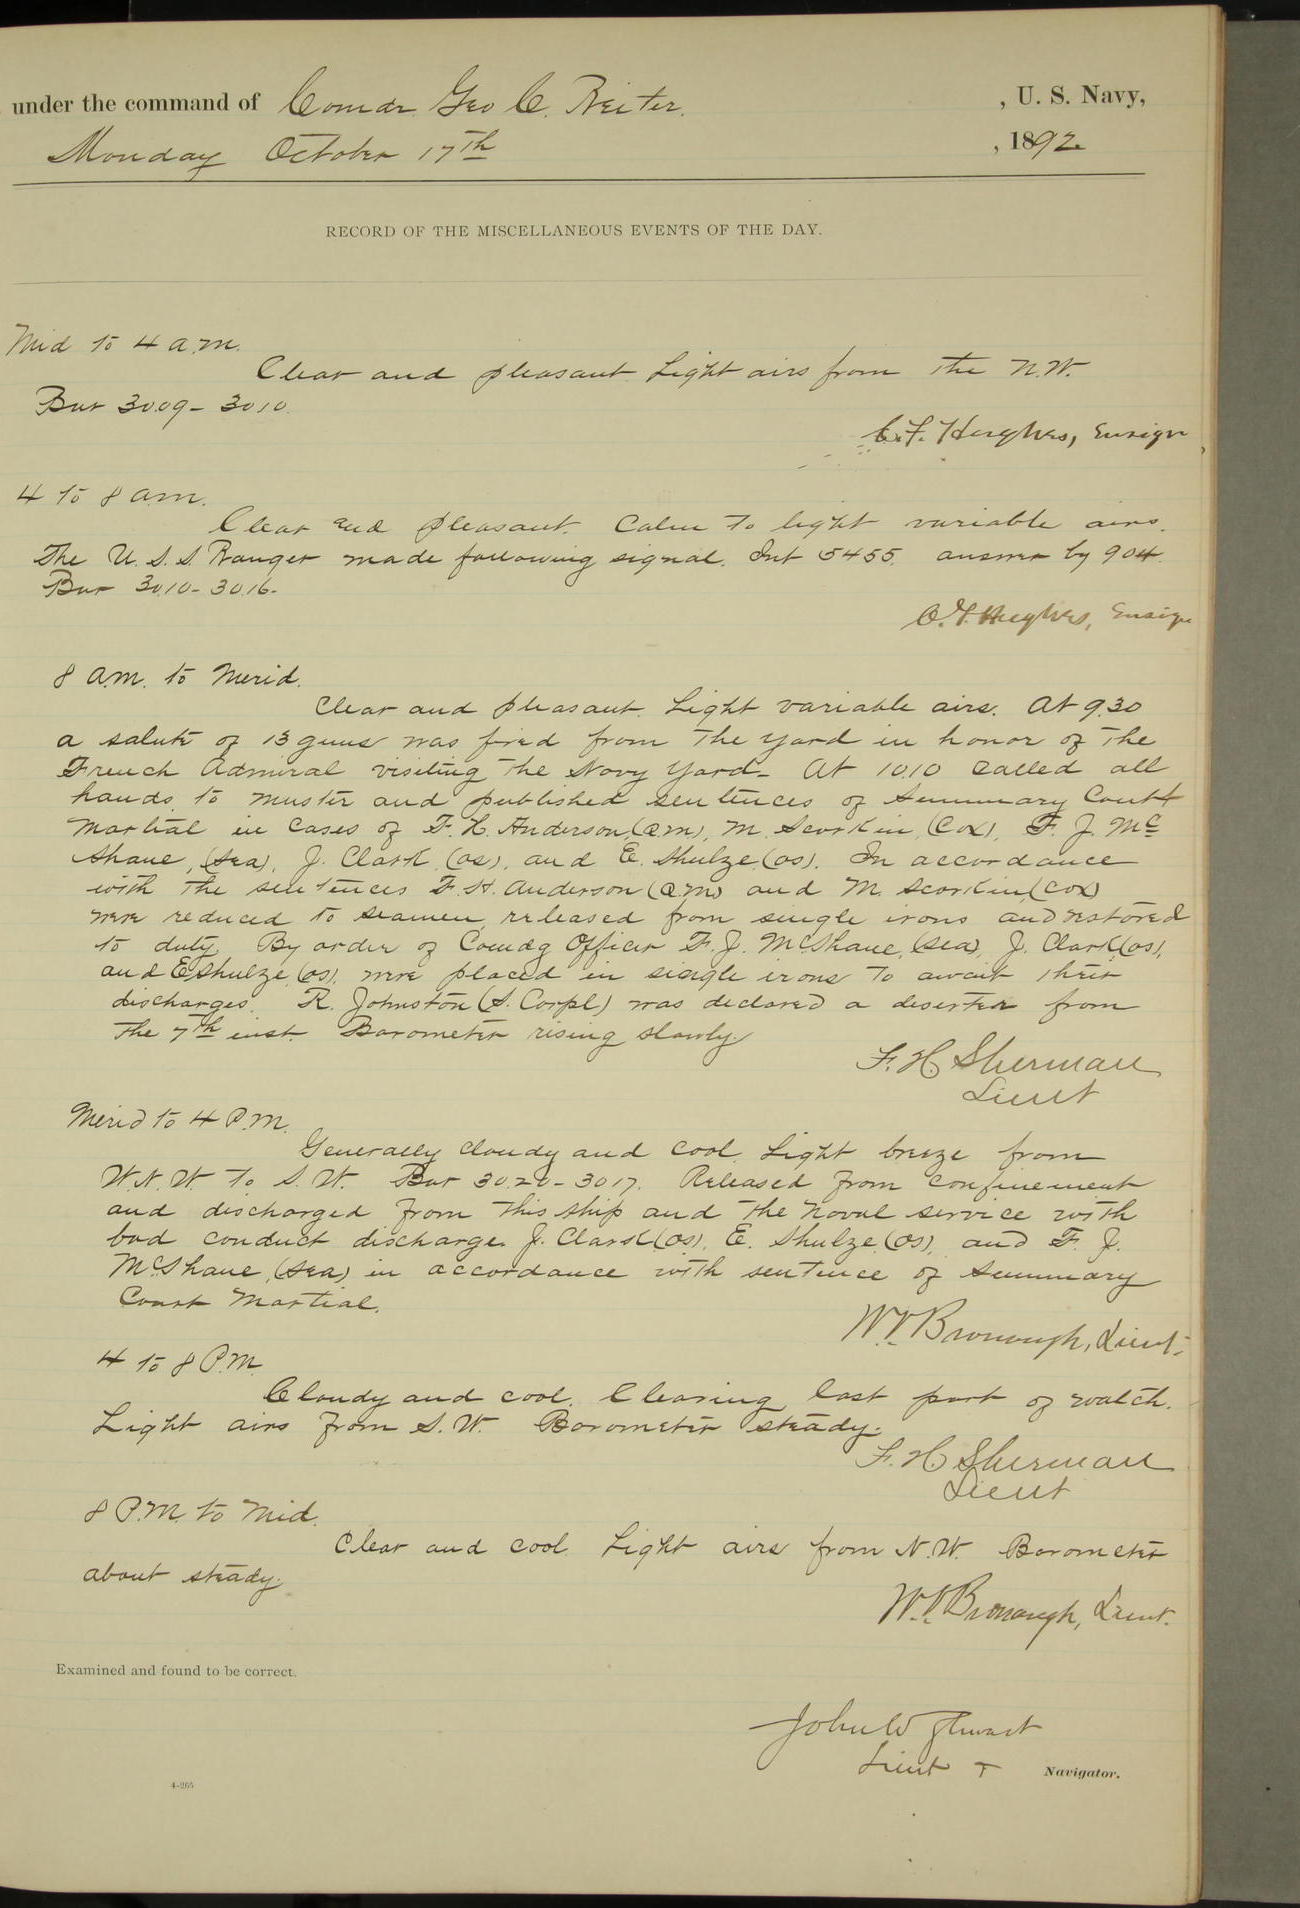 under the command of Comdr. Geo C. Reiter. , U. S. Navy,
Monday October 17th , 1892.
RECORD OF THE MISCELLANEOUS EVENTS OF THE DAY.
Mid to 4 a.m.
Clear and pleasant Light airs from the N.W.
Bar 30.09 - 30.10.
C. F. Hughes, Ensign
4 to 8 a.m.
Clear and pleasant. Calm to light variable airs.
The U. S. S. Ranger made following signal. Int 5455. answer by 904.
Bar 30.10 - 30.16.
C. F. Hughes, Ensign
8 a.m. to Merid.
Clear and pleasant. Light variable airs. At 9.30
a salute of 13 guns was fired from the yard in honor of the
French Admiral visiting the Navy Yard. At 10.10 called all
hands to muster and published sentences of Summary Court
Martial in cases of F. H. Anderson, (Q.M.), M. Scorkin, (Cox), F. J. Mc
Shane, (Sea), J. Clark (OS), and E. Shulze (OS). In accordance
with the sentences F. H. Anderson (Q.M) and M. Scorkin, (Cox)
were reduced to seamen, released from single irons and restored
to duty. By order of Comdg Officer F. J. McShane, (Sea), J. Clark (OS),
and E Shulze, (OS), were placed in single irons to await their
discharges. R. Johnston (S. Corpl) was declared a deserter from
the 7th inst. Barometer rising slowly.
F. H. Sherman
Lieut
Merid to 4 P.M.
Generally cloudy and cool. Light breeze from
W.N.W. to S.W. Bar 30.20 - 30.17. Released from confinement
and discharged from this ship and the Naval service with
bad conduct discharge J. Clark (OS), E. Shulze, (OS), and F. J.
McShane, (Sea) in accordance with sentence of Summary
Court Martial.
W. V. Bronaugh, Lieut.
4 to 8 P.M.
Cloudy and cool. Clearing last part of watch.
Light airs from S.W. Barometer steady.
F. H. Sherman
Lieut
8 P.M. to Mid.
Clear and cool. Light airs from N.W. Barometer
about steady.
W. V. Bronaugh, Lieut.
Examined and found to be correct.
John W Stewart
Lieut + Navigator.
4-265